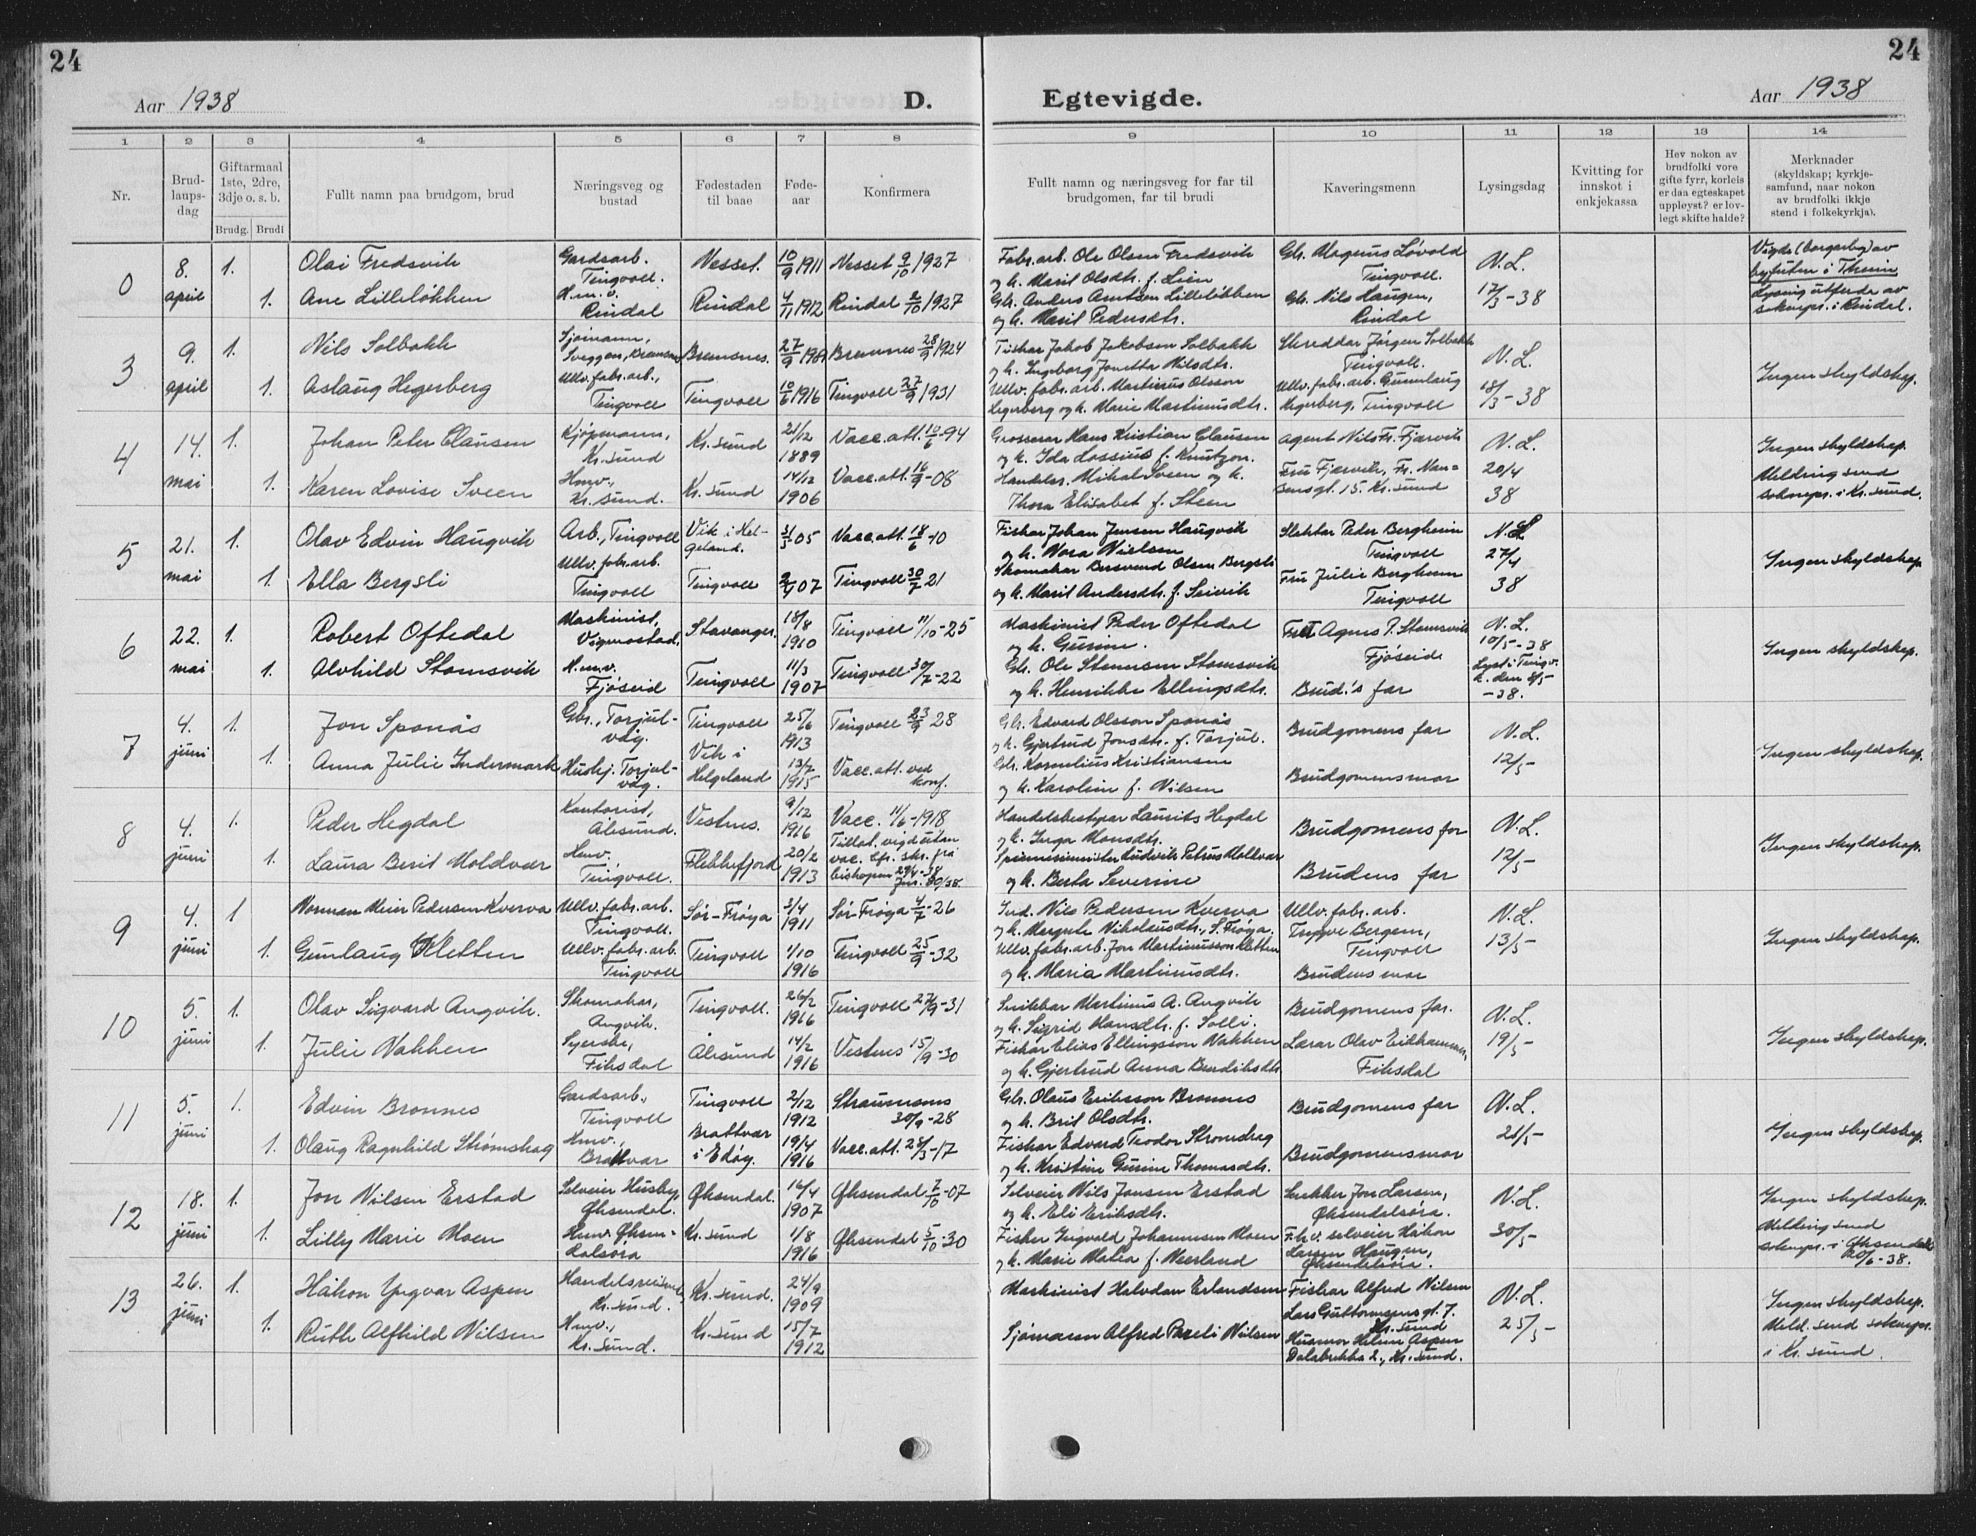 24
24
Aar 1938
D.
Egtevigde.
Aar 1938
1 2 3 4 5 6 7 8 9 10 11 12 13 14
Nr.
Brud-
laups-
dag
Giftarmaal
1ste, 2dre,
3dje o. s. b.
Brudg. Brudi
Fullt namn paa brudgom, brud
Næringsveg og
bustad
Fødestaden
til baae
Føde-
aar
Konfirmera
Fullt namn og næringsveg for far til
brudgomen, far til brudi
Kaveringsmenn
Lysingsdag
Kvitting for
innskot i
enkjekassa
Hev nokon av
brudfolki vore
gifte fyrr, korleis
er daa egteskapet
uppløyst? er lov-
legt skifte halde?
Merknader
(skyldskap; kyrkje-
samfund, naar nokon
av brudfolki ikkje
stend i folkekyrkja).
0
8.
april
1.
Olai Fredsvik
Gardsarb.
Tingvoll.
Nesset.
10/9 1911
Nesset 9/10 1927
Fabr.arb. Ole Olsen Fredsvik
og k. Marit Olsdtr. f. Lien
Gbr. Magnus Løvold
Tingvoll.
N.L.
17/3-38
1.
Ane Lilleløkken
H.m.v.
Rindal
Rindal
4/11 1912
Rindal 2/10 1927
Gbr. Anders Arntsen Lilleløkken
og k. Marit Pedersdtr.
Gbr. Nils Haugen,
Rindal
Vigde (borgarleg) av
byfuten i Thrheim
Lysing utferda av
soknepr. i Rindal.
3
9.
april
1.
Nils Solbakk
Sjømann,
Sveggen, Bremsnes
Bremsnes.
27/9 1909
Bremsnes 28/9 1924
Fiskar Jakob Jakobsen Solbakk
og k. Ingeborg Jonetta Nilsdtr.
Skreddar Jørgen Solbakk
Tingvoll.
N.L.
18/3-38
1.
Aslaug Hegerberg
Ullv.fabr.arb.,
Tingvoll
Tingvoll
10/6 1916
Tingvoll 27/9 1931
Ullv. fabr. arb. Martinus Olsson
Hegerberg og k. Marie Martinusdtr.
Ullv. fabr. arb. Gunnlaug
Hegerberg, Tingvoll
Ingen skyldskap.
4
14.
mai
1.
Johan Peter Clausen
Kjøpmann,
Kr.sund
Kr. sund
21/12
1889
Vacc.att. 10/6-94
Grosserar Hans Kristian Clausen
og k. Ida Lossius f. Knutzon.
Agent Nils Fr. Fjærvik
N.L.
20/4
38
1.
Karen Lovise Sveen
Hmv.,
Kr. sund.
Kr. sund
14/12
1906
Vacc.att. 16/9-08
Handelsr. Mikal Sveen og k.
Thora Elisabet f. Steen
Fru Fjærvik, Fr. Nan=
sensgt. 15. Kr. sund
Ingen skyldskap.
Melding send
soknepr. i Kr. sund.
5
21.
mai
1.
Olav Edvin Haugvik
Arb., Tingvoll
Vik i Hel-
geland.
3/3 05
Vacc.att. 18/6-10
Fiskar Johan Jensen Haugvik
og k. Nora Nielsen
Slaktar Peder Bergheim
Tingvoll
N.L.
27/4
38
1.
Ella Bergsli
Ullv. fabr. arb.
Tingvoll
Tingvoll
2/4 07
Tingvoll 30/7 21
Skomakar Bersvend Olsen Bergsli
og k. Marit Andersdtr. f. Leivik
Fru Julie Bergheim
Tingvoll
Ingen skyldskap.
6
22.
mai
1.
Robert Oftedal
Maskinist,
Vigmostad.
Stavanger.
18/8
1910
Tingvoll 11/10-25
Maskinist Peder Oftedal
og k. Gurine.
Agnes P. Stomsvik
Fjøseide
N.L.
10/5-38
1.
Alvhild Stomsvik
H.m.v.
Fjøseid
Tingvoll
11/3
1907
Tingvoll 30/7-22
Gbr. Ole Stensen Stomsvik
og k. Henrikke Ellingsdtr.
Brud's far
Lyst i Tingv.
k. den 8/5-
-38.
Ingen skyldskap.
7
4.
juni
1.
Jon Sponås
Gbr., Torjul-
våg.
Tingvoll
25/6
1913
Tingvoll 23/9 28
Gbr. Edvard Olsson Sponås
og k. Gjertrud Jonsdtr. f. Torjul.
Brudgomens far
N.L.
12/5-
1.
Anna Julie Indermark
Hushj. Torjul-
våg.
Vik i
Helgeland
13/7
1915
Vacc.att. ved
konf.
Gbr. Kornelius Kristiansen
og k. Karoline f. Nilsen
Brudgomens mor
Ingen skyldskap.
8
4.
juni
1.
Peder Hegdal
Kontorist,
Ålesund.
Vestnes.
9/12
1916
Vacc. 11/6-1918
Handelsbestyrar Laurits Hegdal
og k. Inga Hansdtr.
Brudgomens far
N.L.
12/5-
1.
Laura Berit Moldvær
Hmv.
Tingvoll.
Flekkefjord
20/2
1913
Tillat. vigd utan
vac. Efr. skr. frå
bispen 29/4-38
Jnr. 30/38.
Spinnemeister Ludvik Petrus Moldvær
og k. Berta Severine
Brudens far
Ingen skyldskap.
9
4.
juni
1
Norman Meier Pedersen Kverva
Ullv. fabr. arb.
Tingvoll.
Sør-Frøya
3/4
1911
Sør-Frøya 4/7-26
Ind. Nils Pedersen Kverva
og k. Mergrete Nikolausdtr., S. Frøya.
Ullv. fabr. arb.
Trygve Bergem,
Tingvoll
N.L.
13/5-
1.
Gunlaug Kletten
Ullv. fabr. arb.
Tingvoll
Tingvoll
1/10
1916
Tingvoll 25/9-32
Ullv. fabr. arb. Jon Martinusson Kletten
og k. Maria Martinusdtr.
Brudens mor
Ingen skyldskap.
10
5.
juni
1.
Olav Sigvard Angvik.
Skomakar,
Angvik.
Tingvoll.
26/2
1916
Tingvoll 27/9-31
Snikkar Martinus A. Angvik
og k. Sigrid Hansdtr. f. Solli.
Brudgomens far.
N.L.
19/5-
1.
Julie Nakken
Syerske,
Fiksdal
Ålesund
14/2
1916
Vestnes 15/9-30
Fiskar Elias Ellingsson Nakken
og k. Gjertrud Anna Bendiksdtr.
Lærar Olav Eidhammer,
Fiksdal
Ingen skyldskap.
11
5.
juni
1.
Edvin Bronnes
Gardsarb.,
Tingvoll
Tingvoll
2/12
1912
Straumsnes
30/9-28
Gbr. Olaus Eriksson Bronnes
og k. Brit Olsdtr.
Brudgomens far
N.L.
21/5-
1.
Olaug Ragnhild Strømskag
Hmv.,
Brattvær
Brattvær
i Edøy.
19/4
1916
Vacc.att. 28/3-17
Fiskar Edvard Teodor Strømskag
og k. Kristine Gurine Thomasdtr.
Brudgomens mor
Ingen skyldskap.
12
18.
juni
1.
Jon Nilsen Erstad
Selveier Husby,
Øksendal.
Øksendal.
16/4
1907
Øksendal 7/10-07
Selveier Nils Jonsen Erstad
og k. Eli Eriksdtr.
Snekker Jon Larsen,
Øksendalsøra.
N.L.
30/5-
1.
Lilly Marie Moen
Hmv. Øksen-
dalsøra
Kr. sund
1/8
1916
Øksendal 5/10-30
Fisker Ingvald Johannessen Moen
og k. Marie Matea f. Neerland
F.hv. selveier Håkon
Larsen Haugen,
Øksendalsøra.
Ingen skyldskap.
Melding send
soknepr. i Øksendal
20/6-38.
13
26.
juni
1.
Håkon Yngvar Aspen
Handelsreisende,
Kr. sund.
Kr. sund.
24/9
1909
Maskinist Halvdan Erlandsen
Fiskar Alfred Nilsen
Lars Guttormsens gt. 7.
Kr. sund
N.L.
25/5-
1.
Ruth Alfhild Nilsen
Hmv.,
Kr. sund.
Kr. sund
15/7
1912
Sjømann Alfred Pareli Nilsen
Husmor Helene Aspen
Dalabrekka 2, Kr. sund.
Ingen skyldskap.
Meld. send soknepr.
i Kr. sund.